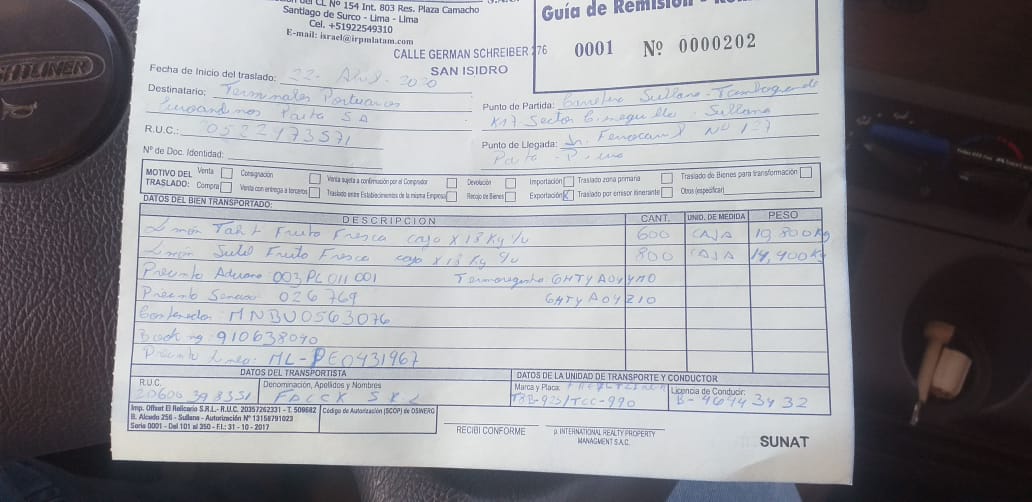 Nº 154 Int. 803 Res. Plaza Camacho
Santiago de Surco - Lima - Lima
Cel. +51922549310
E-mail: israel@irpmlatam.com
Guía de Remisión
CALLE GERMAN SCHREIBER 276
SAN ISIDRO
0001 Nº 0000202
Fecha de Inicio del traslado: 22- Abril- 2020
Destinatario: Terminales Portuarios
Euroandinos Paita SA
R.U.C.: 20522473571
Nº de Doc. Identidad:
Punto de Partida: Carretera Sullana - Tambogrande
K17 Sector Cieneguillo - Sullana
Punto de Llegada: Jr. Ferrocarril Nº 127
Paita - Piura
MOTIVO DEL TRASLADO:
Venta Consignación Venta sujeta a confirmación por el Comprador Devolución Importación Traslado zona primaria Traslado de Bienes para transformación
Compra Venta con entrega a terceros Traslado entre Establecimientos de la misma Empresa Recojo de Bienes Exportación X Traslado por emisor itinerante Otros (especificar)
DATOS DEL BIEN TRANSPORTADO:
DESCRIPCION CANT. UNID. DE MEDIDA PESO
Limón Tahit Fruto Fresca caja x 18 Kg 600 CAJA 10,800Kg
Limón Sutil Fruto Fresca caja x 18 Kg 800 CAJA 14,400Kg
Precinto Aduana: 003 PL 011 001 Termoregistro GHTYA04YM0
Precinto Senasa: 026769 GHTYA04210
Contenedor: MNBU0563076
Booking: 910638040
Precinto Linea: ML-PE0431967
DATOS DEL TRANSPORTISTA
R.U.C. Denominación, Apellidos y Nombres
FACCK SRL
DATOS DE LA UNIDAD DE TRANSPORTE Y CONDUCTOR
Marca y Placa: Freightliner
T8B-925/TCC-990
Licencia de Conducir:
B-46943432
Imp. Offset El Relicario S.R.L.- R.U.C. 20357262331 - T. 509682
B. Alcedo 256 - Sullana - Autorización Nº 13158791023
Serie 0001 - Del 101 al 350 - F.I.: 31 - 10 - 2017
Código de Autorización (SCOP) de OSINERG
RECIBI CONFORME
p. INTERNATIONAL REALTY PROPERTY
MANAGMENT S.A.C.
SUNAT